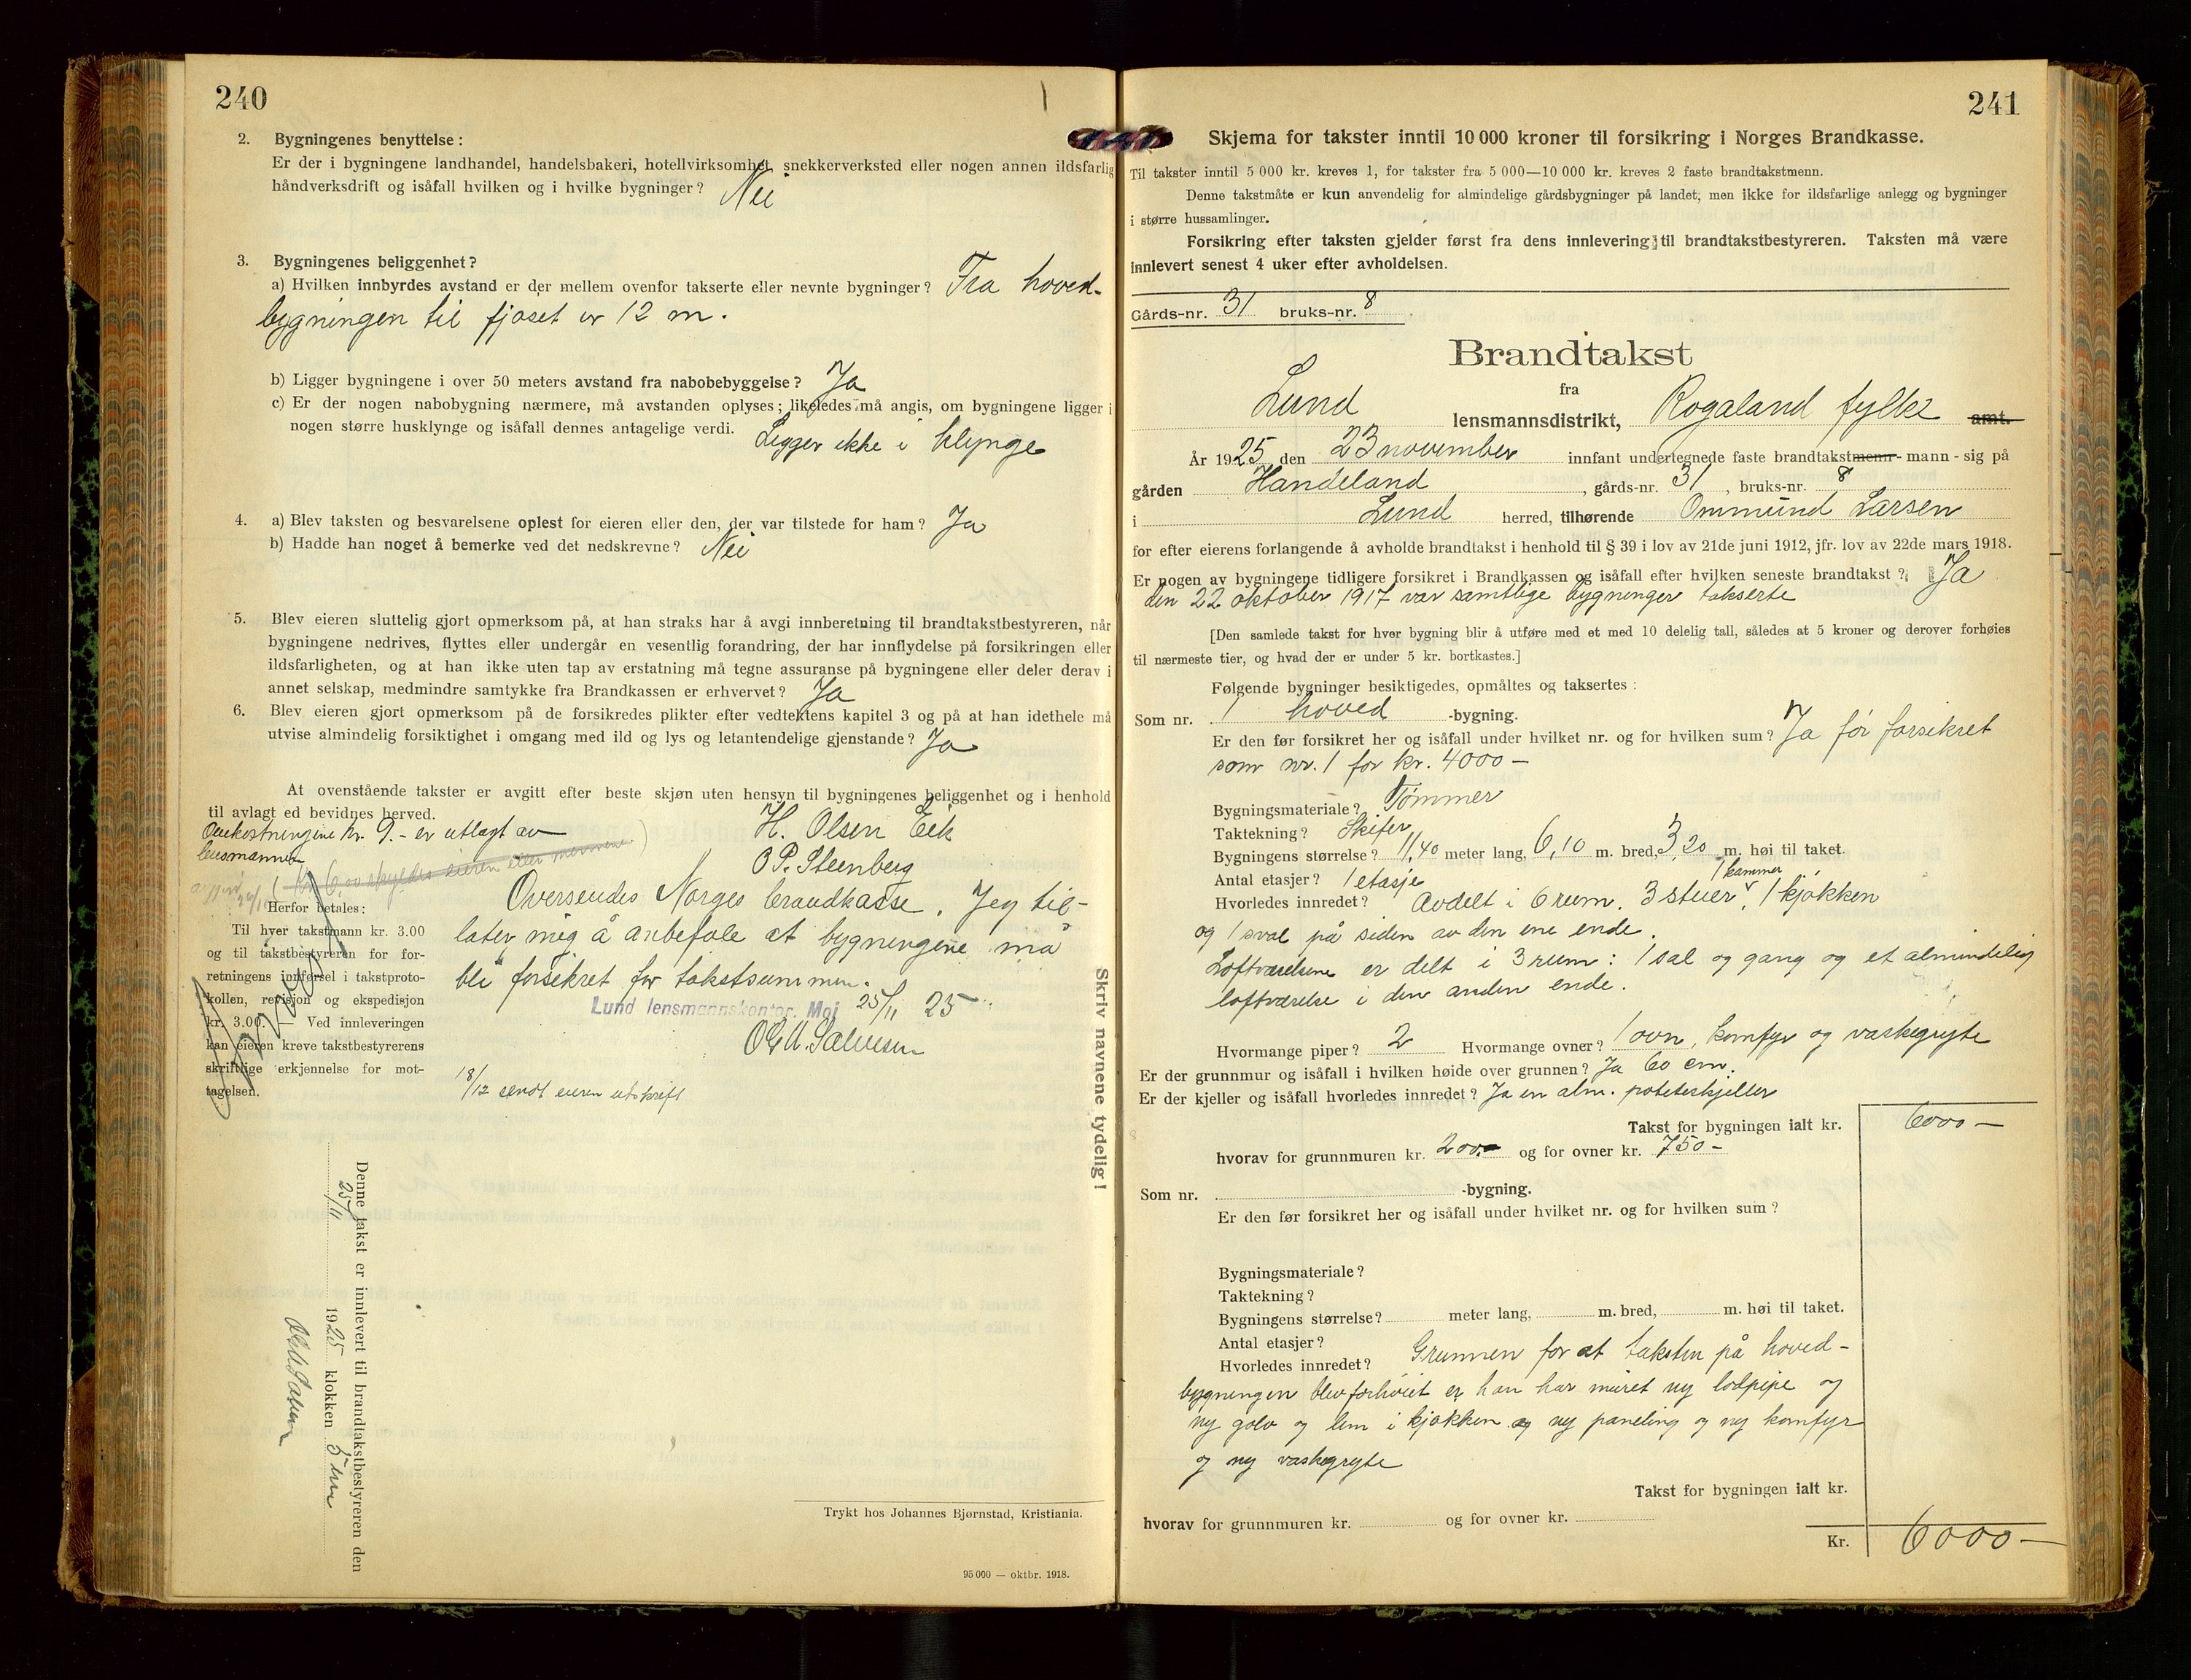 240
2. Bygningenes benyttelse:
Er der i bygningene landhandel, handelsbakeri, hotellvirksomhet, snekkerverksted eller nogen annen ildsfarlig
håndverksdrift og isåfall hvilken og i hvilke bygninger? Nei
3. Bygningenes beliggenhet?
a) Hvilken innbyrdes avstand er der mellem ovenfor takserte eller nevnte bygninger? Fra hoved-
bygningen til fjøset er 12 m.
b) Ligger bygningene i over 50 meters avstand fra nabobebyggelse? Ja
c) Er der nogen nabobygning nærmere, må avstanden oplyses; likeledes må angis, om bygningene ligger i
nogen større husklynge og isåfall dennes antagelige verdi. Ligger ikke i klynge
4. a) Blev taksten og besvarelsene oplest for eieren eller den, der var tilstede for ham? Ja
b) Hadde han noget å bemerke ved det nedskrevne? Nei
5. Blev eieren sluttelig gjort opmerksom på, at han straks har å avgi innberetning til brandtakstbestyreren, når
bygningene nedrives, flyttes eller undergår en vesentlig forandring, der har innflydelse på forsikringen eller
ildsfarligheten, og at han ikke uten tap av erstatning må tegne assuranse på bygningene eller deler derav i
annet selskap, medmindre samtykke fra Brandkassen er erhvervet? Ja
6. Blev eieren gjort opmerksom på de forsikredes plikter efter vedtektens kapitel 3 og på at han idethele må
utvise almindelig forsiktighet i omgang med ild og lys og letantendelige gjenstande? Ja
At ovenstående takster er avgitt efter beste skjøn uten hensyn til bygningenes beliggenhet og i henhold
til avlagt ed bevidnes herved.
H. Olsen Eik
Omkostningene kr. 9.- er utlagt av
lensmannen
O P. Steenberg
Oversendes Norges brandkasse. Jeg til-
later mig å anbefale at bygningene må
bli forsikret for takstsummen.
Lund lensmannskontor, Moi 25/11 25
18/12 sendt eieren utskrift
Herfor betales:
Til hver takstmann kr. 3.00
og til takstbestyreren for for-
retningens innførsel i takstproto-
kollen, revisjon og ekspedisjon
kr. 3.00. — Ved innleveringen
kan eieren kreve takstbestyrerens
skriftlige erkjennelse for mot-
tagelsen.
Denne takst er innlevert til brandtakstbestyreren den
25/11 1925 klokken 5
Skriv navnene tydelig!
Trykt hos Johannes Bjørnstad, Kristiania.
95 000 — oktbr. 1918.
241
Skjema for takster inntil 10 000 kroner til forsikring i Norges Brandkasse.
Til takster inntil 5 000 kr. kreves 1, for takster fra 5 000—10 000 kr. kreves 2 faste brandtakstmenn.
Denne takstmåte er kun anvendelig for almindelige gårdsbygninger på landet, men ikke for ildsfarlige anlegg og bygninger
i større hussamlinger.
Forsikring efter taksten gjelder først fra dens innlevering til brandtakstbestyreren. Taksten må være
innlevert senest 4 uker efter avholdelsen.
Gårds-nr. 31 bruks-nr. 8
Brandtakst
fra
Lund lensmannsdistrikt, Rogaland fylke amt.
År 1925 den 23 november innfant undertegnede faste brandtakstmenn - mann - sig på
gården Handeland, gårds-nr. 31, bruks-nr. 8
i Lund herred, tilhørende Ommund Larsen
for efter eierens forlangende å avholde brandtakst i henhold til § 39 i lov av 21de juni 1912, jfr. lov av 22de mars 1918.
Er nogen av bygningene tidligere forsikret i Brandkassen og isåfall efter hvilken seneste brandtakst? Ja
den 22 oktober 1917 var samtlige bygninger takserte
[Den samlede takst for hver bygning blir å utføre med et med 10 delelig tall, således at 5 kroner og derover forhøies
til nærmeste tier, og hvad der er under 5 kr. bortkastes.]
Følgende bygninger besiktigedes, opmåltes og taksertes:
Som nr. 1 hoved -bygning.
Er den før forsikret her og isåfall under hvilket nr. og for hvilken sum? Ja før forsikret
som nr. 1 for kr. 4000 —
Bygningsmateriale? Tømmer
Taktekning? Skifer
Bygningens størrelse? 11,40 meter lang, 6,10 m. bred, 3,20 m. høi til taket.
Antal etasjer? 1 etasje
1 kammer
Hvorledes innredet? Avdelt i 6 rum. 3 stuer, 1 kjøkken
og 1 sval på siden av den ene ende.
Loftværelsene er delt i 3 rum: 1 sal og gang og et almindelig
loftværelse i den anden ende.
Hvormange piper? 2 Hvormange ovner? 1 ovn, komfyr og vaskegryte
Er der grunnmur og isåfall i hvilken høide over grunnen? Ja 60 cm.
Er der kjeller og isåfall hvorledes innredet? Ja en alm. poteterkjeller
Takst for bygningen ialt kr. 6000 —
hvorav for grunnmuren kr. 200 — og for ovner kr. 750 —
Som nr. -bygning.
Er den før forsikret her og isåfall under hvilket nr. og for hvilken sum?
Bygningsmateriale?
Taktekning?
Bygningens størrelse? meter lang, m. bred, m. høi til taket.
Antal etasjer?
Hvorledes innredet? Grunnen for at taksten på hoved-
bygningen blev forhøiet er han har muret ny lodpipe og
ny golv og lem i kjøkken og ny paneling og ny komfyr
og ny vaskegryte
Takst for bygningen ialt kr.
hvorav for grunnmuren kr. og for ovner kr.
Kr. 6000 —